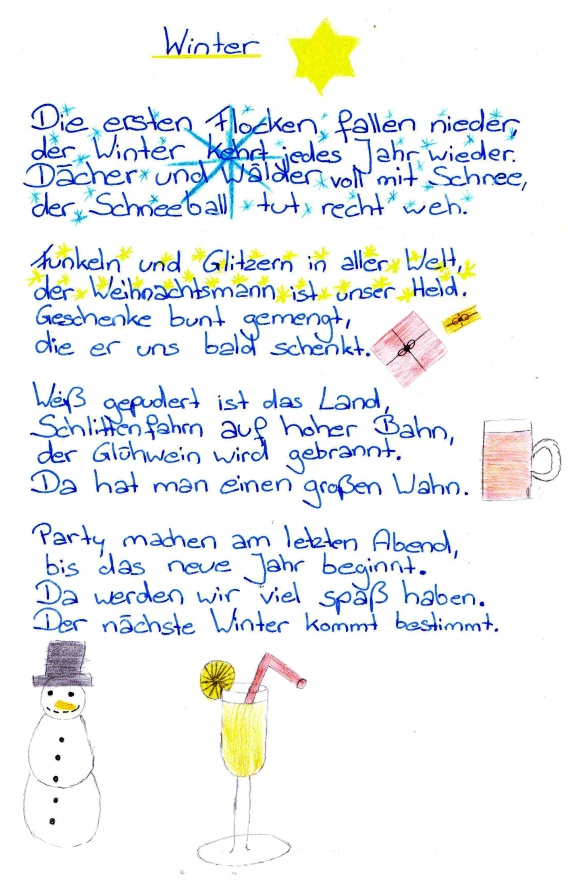 Winter
Die ersten Flocken, fallen nieder,
der Winter kehrt jedes Jahr wieder.
Dächer und Wälder voll mit Schnee,
der Schneeball tut recht weh.
Funkeln und Glitzern in aller Welt,
der Weihnachtsmann ist unser Held.
Geschenke bunt gemengt,
die er uns bald schenkt.
Weiß gepudert ist das Land,
Schlittenfahrn auf hoher Bahn,
der Glühwein wird gebrannt.
Da hat man einen großen Wahn.
Party machen am letzten Abend,
bis das neue Jahr beginnt.
Da werden wir viel spaß haben.
Der nächste Winter kommt bestimmt.